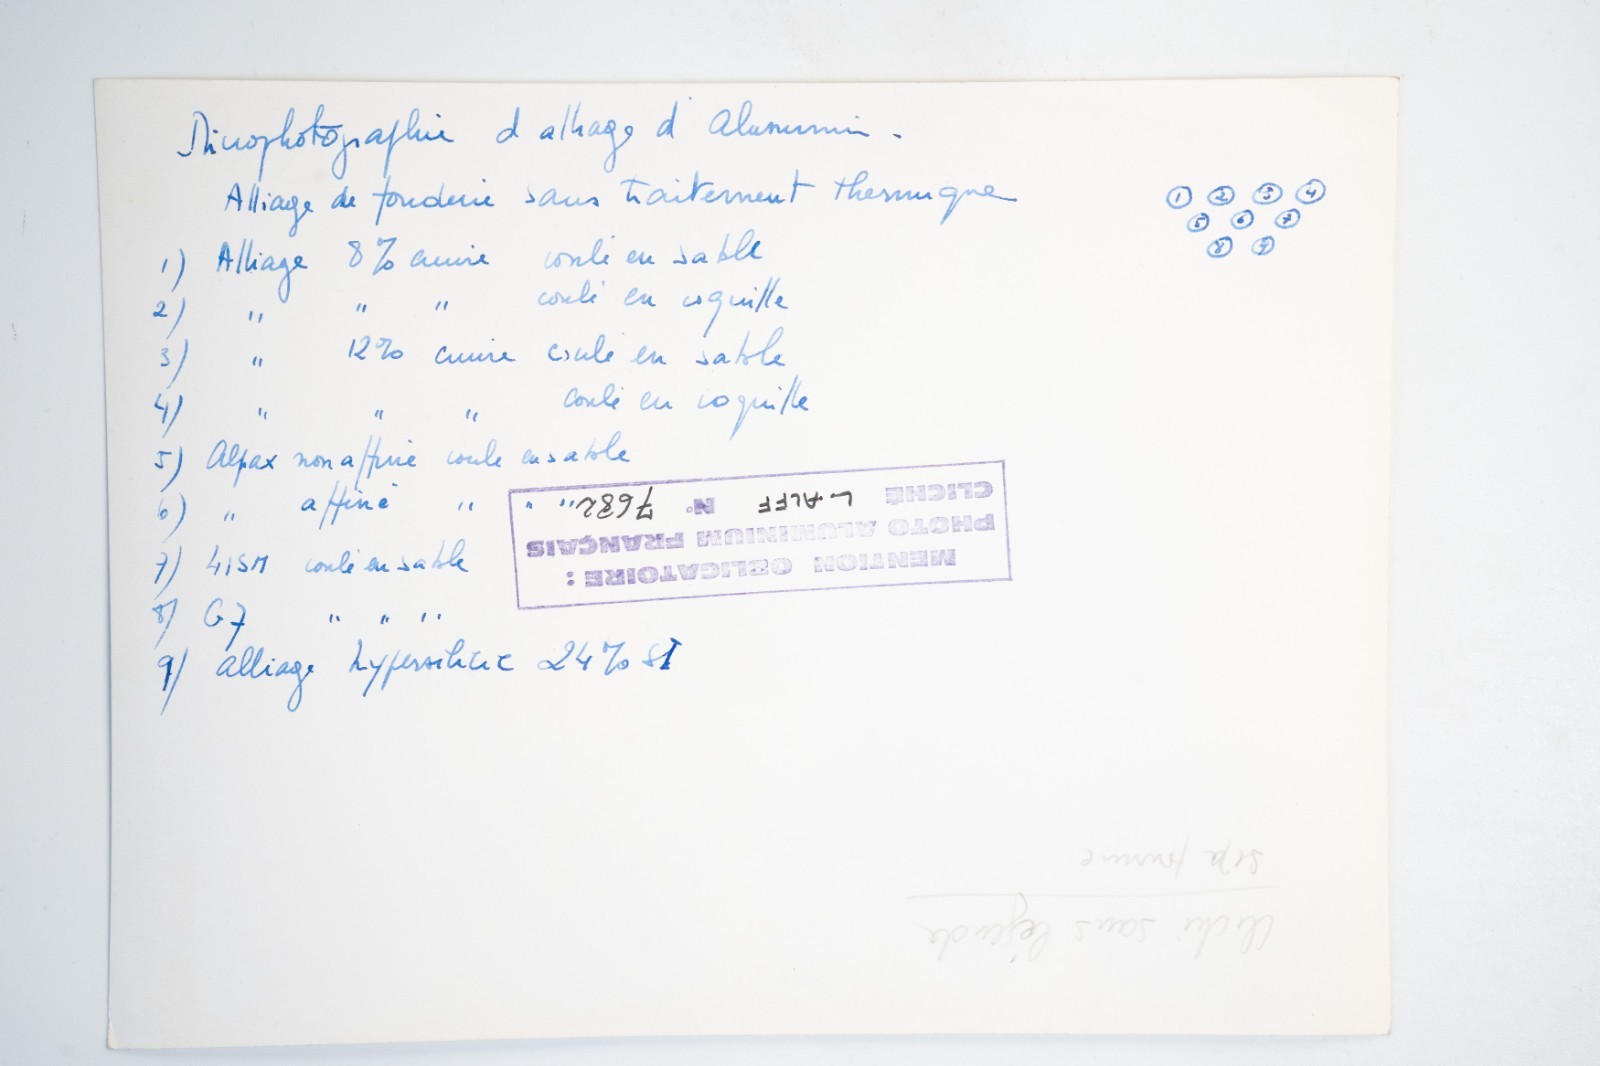 Microphotographie d alliage d' Aluminium.
Alliage de fonderie sans traitement thermique
① ② ③ ④
⑤ ⑥ ⑦
⑧ ⑨
1) Alliage 8% cuivre coulé en sable
2) " " " coulé en coquille
3) " 12% cuivre coulé en sable
4) " " " coulé en coquille
5) Alpax non affiné coulé en sable
6) " affiné " " "
7) 4ISM coulé en sable
8) G7 " " "
9) alliage hypersilicié 24% SI
MENTION OBLIGATOIRE :
PHOTO ALUMINIUM FRANÇAIS
CLICHÉ L-ALFF N° 7682
Cliché sans légende